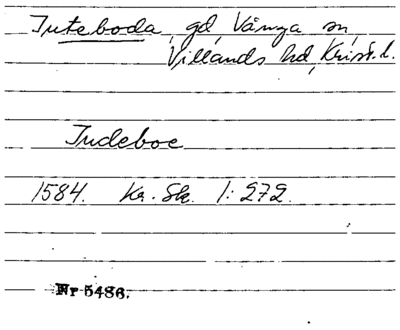 Juteboda, gd, Vånga sn,
Villands hd, Krist. l.
Judeboe
1584. Kr. Sk. 1:272.
Nr 5486.